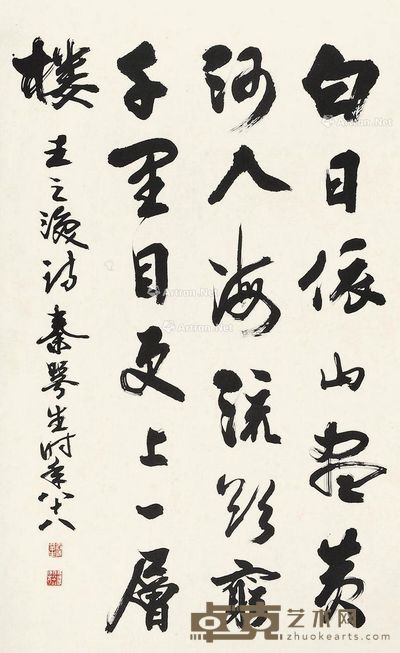 白日依山盡黄
河入海流欲窮
千里目更上一層
楼 王之涣诗 秦咢生时年八十八
Artron.Net
Artron.Net
Artron.Net
Artron.Net
卓克艺术网
zhuokearts.com